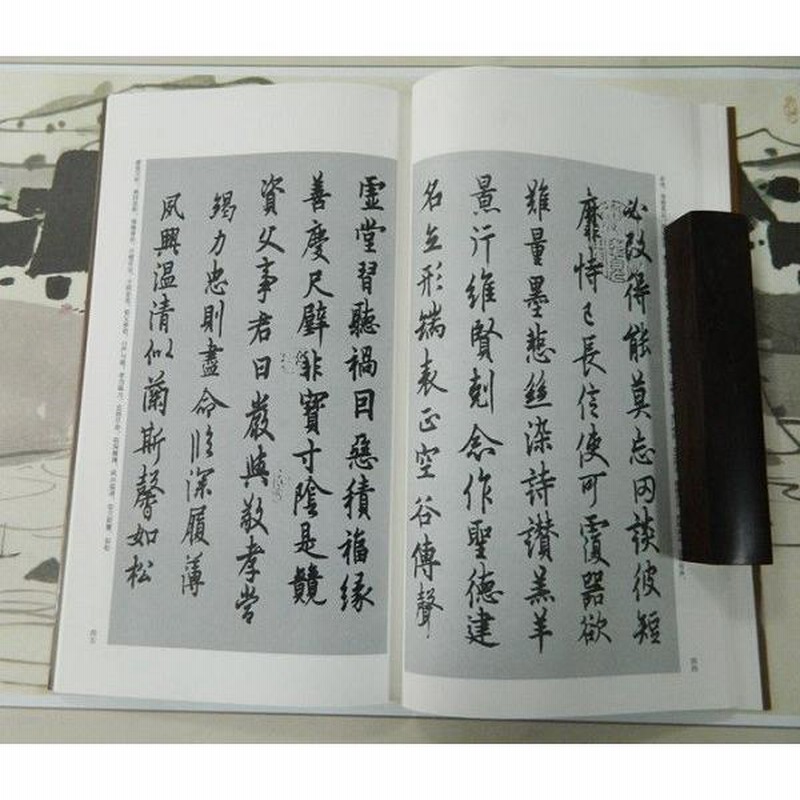 必改得能莫忘罔談彼短
靡恃己長信使可覆器欲
難量墨悲絲染詩讃羔羊
景行維賢剋念作聖德建
名立形端表正空谷傳聲
虚堂習聽禍因惡積福緣
善慶尺璧非寶寸陰是競
資父事君曰嚴與敬孝當
竭力忠則盡命臨深履薄
夙興温清似蘭斯馨如松
四五
四四